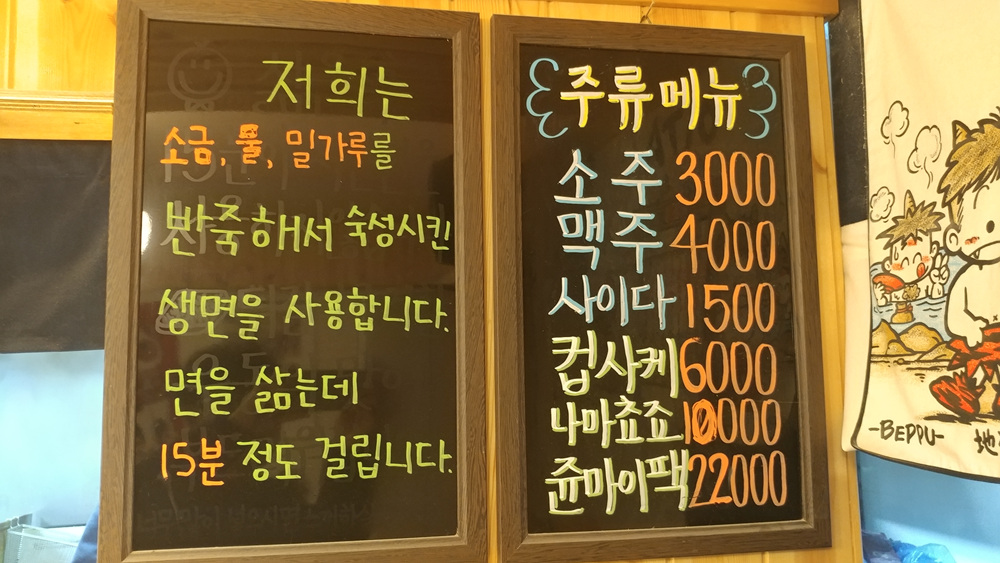 저희는
소금, 물, 밀가루를
반죽해서 숙성시킨
생면을 사용합니다.
면을 삶는데
15분 정도 걸립니다.
주류메뉴
소주 3000
맥주 4000
사이다 1500
컵사케 6000
나마쵸죠 10000
쥰마이팩 22000
-BEPPU-
地